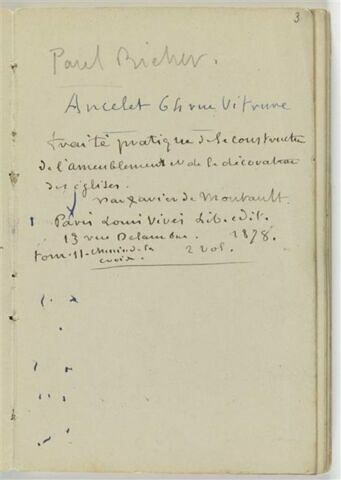 3
Paul Bicher.
Ancelet 64 rue Vitruve
traité pratique de la constructi
de l'ameublement et de la décoration
des églises.
par Xavier de Montault
Paris Louis Vivès Lib. edit.
13 rue Delambre. 1878.
tom. II - Chemin de la croix. 2 vol.